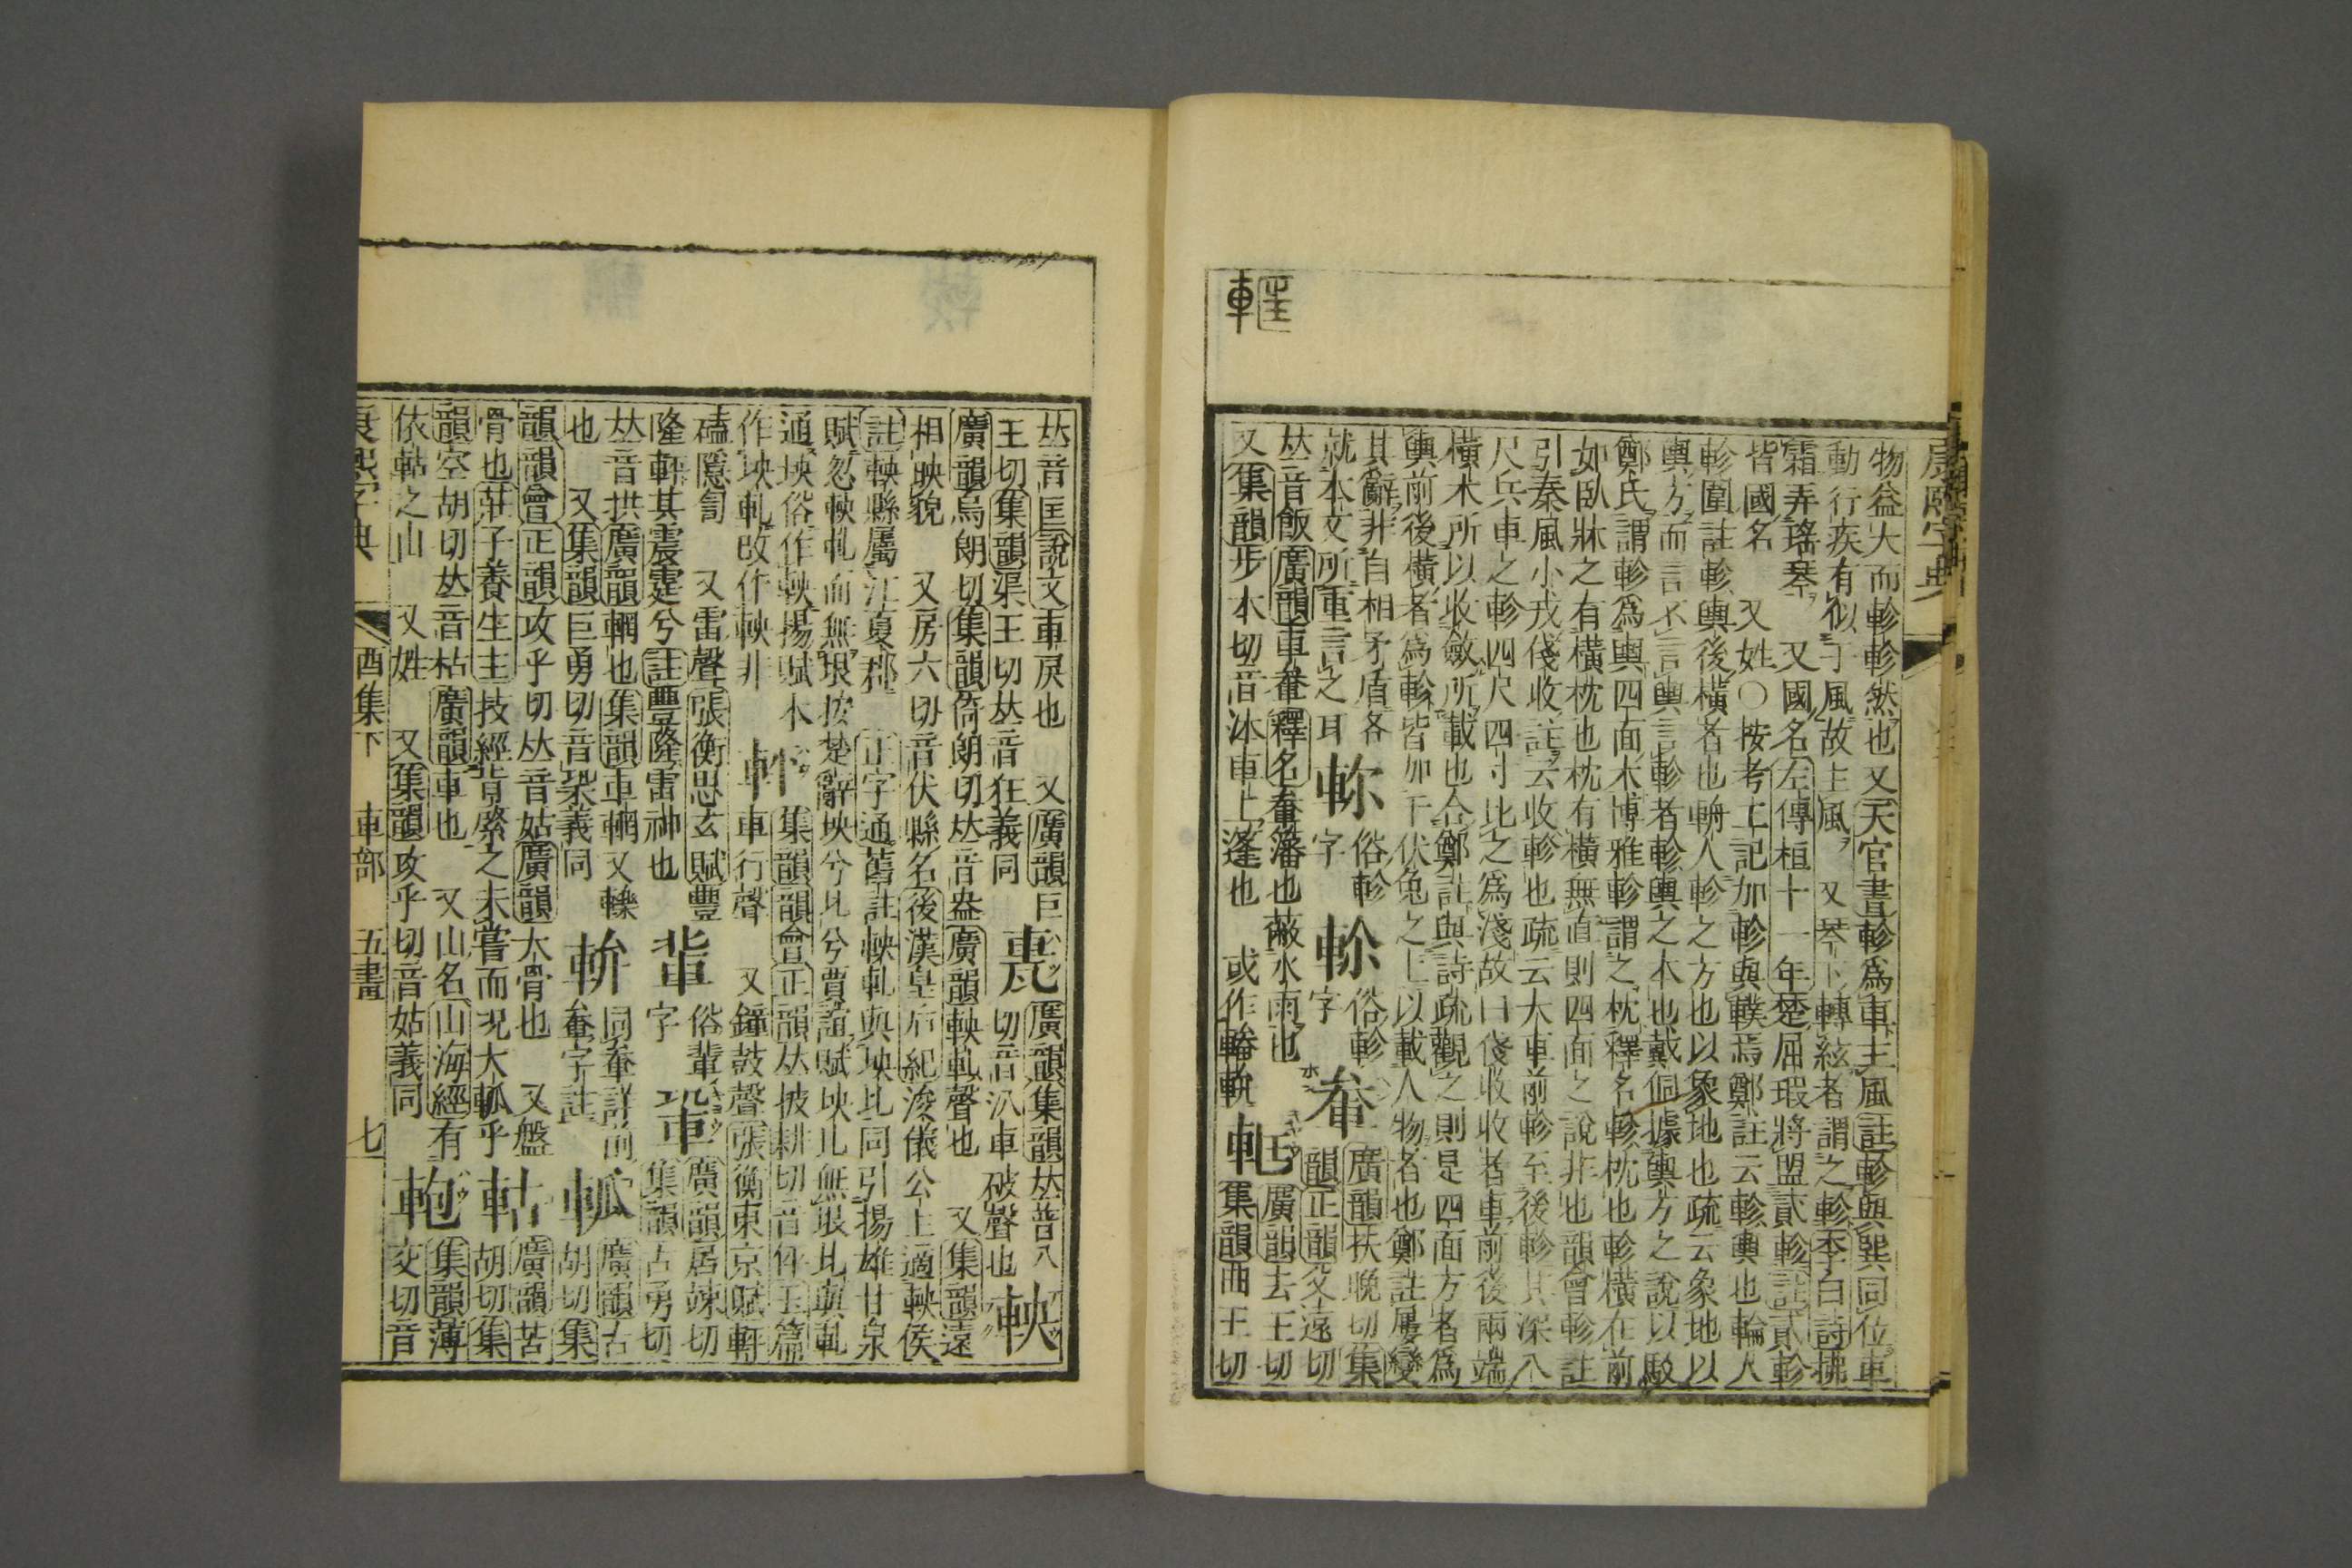 康熙字典
物益大而軫軫然也又天官書軫爲車主風註軫與巽同位車
動行疾有似于風故主風　又琴下轉絃者謂之軫李白詩拂
霜弄瑤琴　又國名左傳桓十一年楚屈瑕將盟貳軫註貳軫
皆國名　又姓○按考工記加軫與轐焉鄭註云軫輿也輪人
軫圍註軫輿後橫者也輈人軫之方也以象地也疏云象地以
輿方而言不言輿言軫者軫輿之本也戴侗據輿方之說以駁
鄭氏謂軫爲輿四面木博雅軫謂之枕釋名軫枕也軫橫在前
如臥牀之有橫枕也枕有橫無直則四面之說非也韻會軫註
引秦風小戎俴收註云收軫也疏云大車前軫至後軫其深八
尺兵車之軫四尺四寸比之爲淺故曰俴收收者車前後兩端
橫木所以收斂所載也合鄭註與詩疏觀之則是四面方者爲
輿前後橫者爲軫皆加于伏兔之上以載人物者也鄭註屢變
其辭非自相矛盾各
就本文所重言之耳
俗軫
字
俗軫
字
軬
廣韻扶晚切集
韻正韻父遠切
𠀤音飯廣韻車軬釋名軬藩也蔽水雨也
又集韻步本切音 車上篷也　或作
軭
廣韻去王切
集韻曲王切
𠀤音匡說文車戾也　又廣韻巨
王切集韻渠王切𠀤音狂義同
廣韻集韻𠀤普八
切音汃車破聲也
軮
廣韻烏朗切集韻倚朗切𠀤音盎廣韻軮軋聲也　又集韻遠
相映貌　又房六切音伏縣名後漢皇后紀浚儀公主適軮侯
註軮縣屬江夏郡　正字通舊註軮軋與坱圠同引揚雄甘泉
賦忽軮軋而無垠按楚辭坱兮圠兮賈誼賦坱圠無垠圠與軋
通坱俗作軮揚賦本
作坱軋改作軮非
軯
集韻韻會正韻𠀤披耕切音怦玉篇
車行聲　又鐘鼓聲張衡東京賦軯
磕隱訇　又雷聲張衡思玄賦豐
隆軯其震霆兮註豐隆雷神也
俗輩
字
廣韻居竦切
集韻古勇切
𠀤音拱廣韻輞也集韻車輞又轢
也　又集韻巨勇切音 義同
軿
同軬詳前
軬字註
軱
廣韻古
胡切集
韻韻會正韻攻乎切𠀤音姑廣韻大骨也　又盤
骨也莊子養生主技經肯綮之未嘗而況大軱乎
軲
廣韻苦
胡切集
韻空胡切𠀤音枯廣韻車也　又山名山海經有
依軲之山　又姓　又集韻攻乎切音姑義同
軳
集韻薄
交切音
康熙字典　酉集下　車部　五畫　七